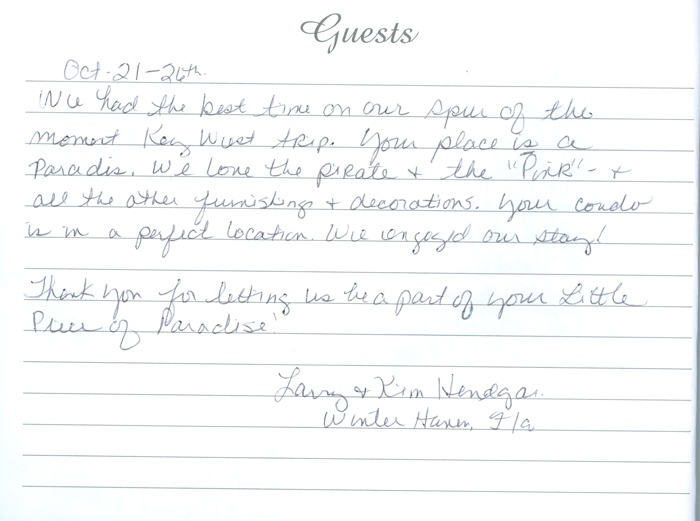 Guests
Oct. 21-26th.
We had the best time on our spur of the
moment Key West trip. Your place is a
Paradis. We love the pirate + the "Pink" - +
all the other furnishings + decorations. Your condo
is in a perfect location. We engoyd our stay!
Thank you for letting us be a part of your Little
Piece of Paradise!
Larry & Kim
Winter Haven, Fla